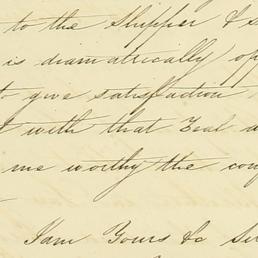 to the Shipper & s
is dramatrically op
to give satisfaction
with that Zeal a
me worthy the con
I am Yours &c Se